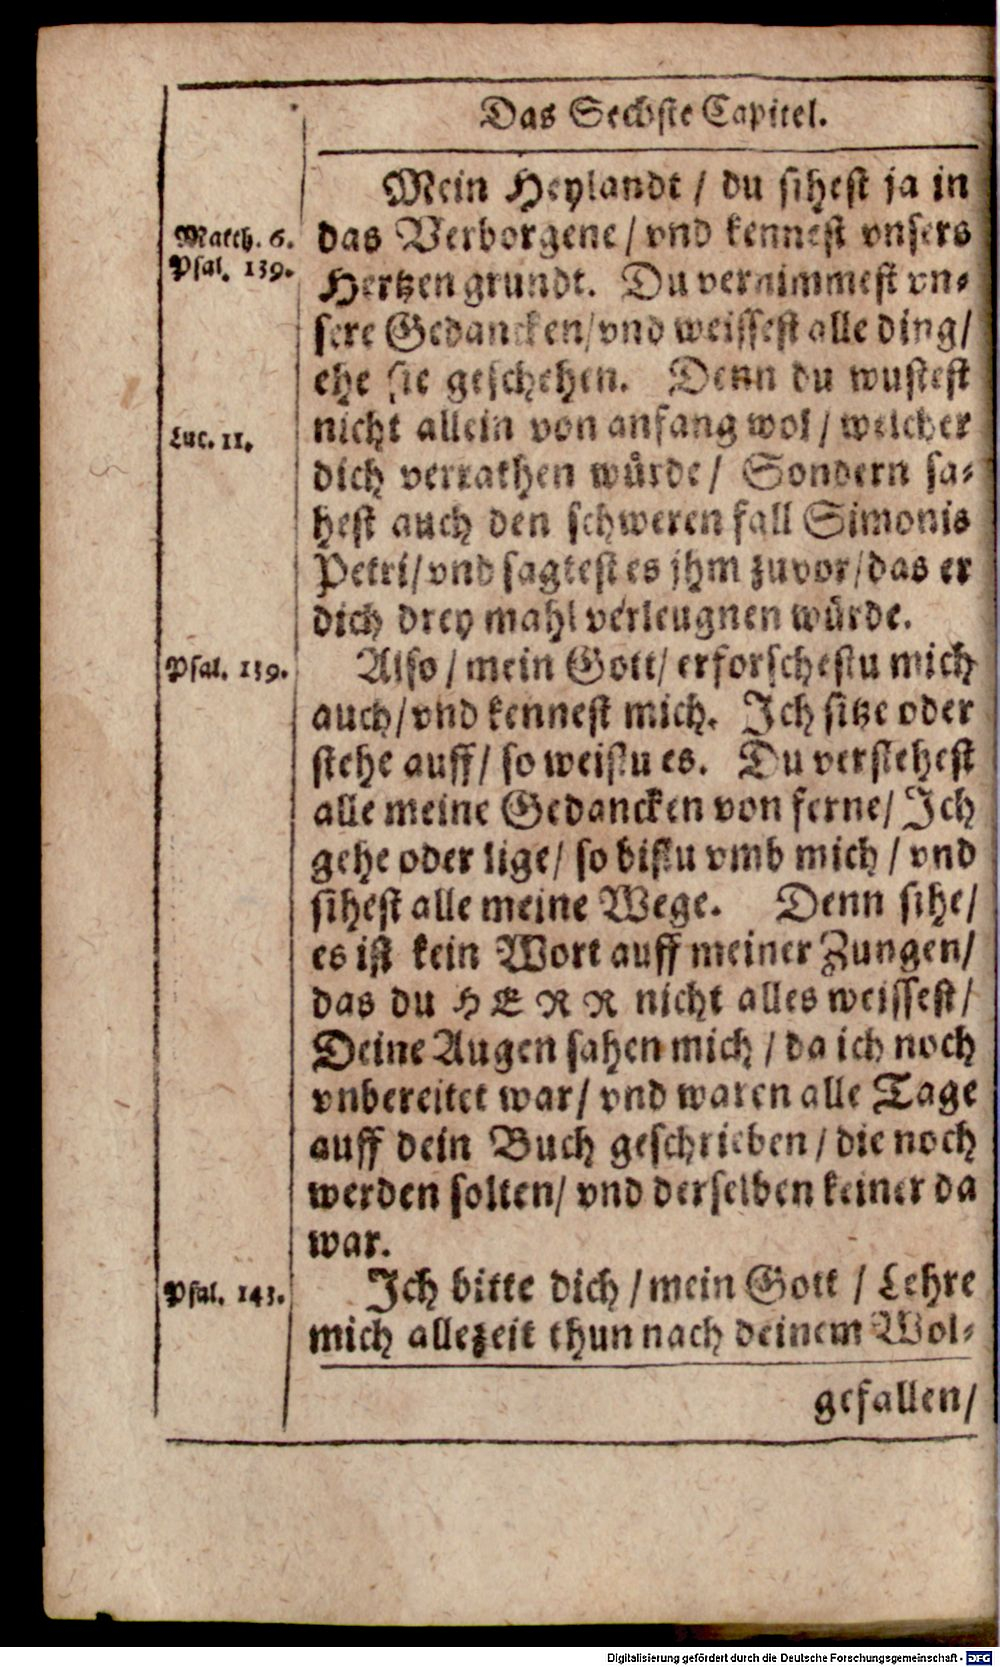 Das Sechste Capitel.
Mein Heylandt / du sihest ja in
Matth. 6.
das Verborgene / vnd kennest vnsers
Psal. 139.
Hertzen grundt. Du vernimmest vn-
sere Gedancken/vnd weissest alle ding/
ehe sie geschehen. Denn du wustest
nicht allein von anfang wol / welcher
Luc. 11.
dich verrathen würde / Sondern sa-
hest auch den schweren fall Simonis
Petri/vnd sagtest es jhm zuvor/das er
dich drey mahl verleugnen würde.
Psal. 139.
Also / mein Gott/ erforschestu mich
auch/vnd kennest mich. Ich sitze oder
stehe auff/ so weistu es. Du verstehest
alle meine Gedancken von ferne/ Ich
gehe oder lige/ so bistu vmb mich / vnd
sihest alle meine Wege. Denn sihe/
es ist kein Wort auff meiner Zungen/
das du HERR nicht alles weissest/
Deine Augen sahen mich / da ich noch
vnbereitet war/ vnd waren alle Tage
auff dein Buch geschrieben / die noch
werden solten/ vnd derselben keiner da
war.
Psal. 143.
Ich bitte dich / mein Gott / Lehre
mich allezeit thun nach deinem Wol-
gefallen/
Digitalisierung gefördert durch die Deutsche Forschungsgemeinschaft - DFG